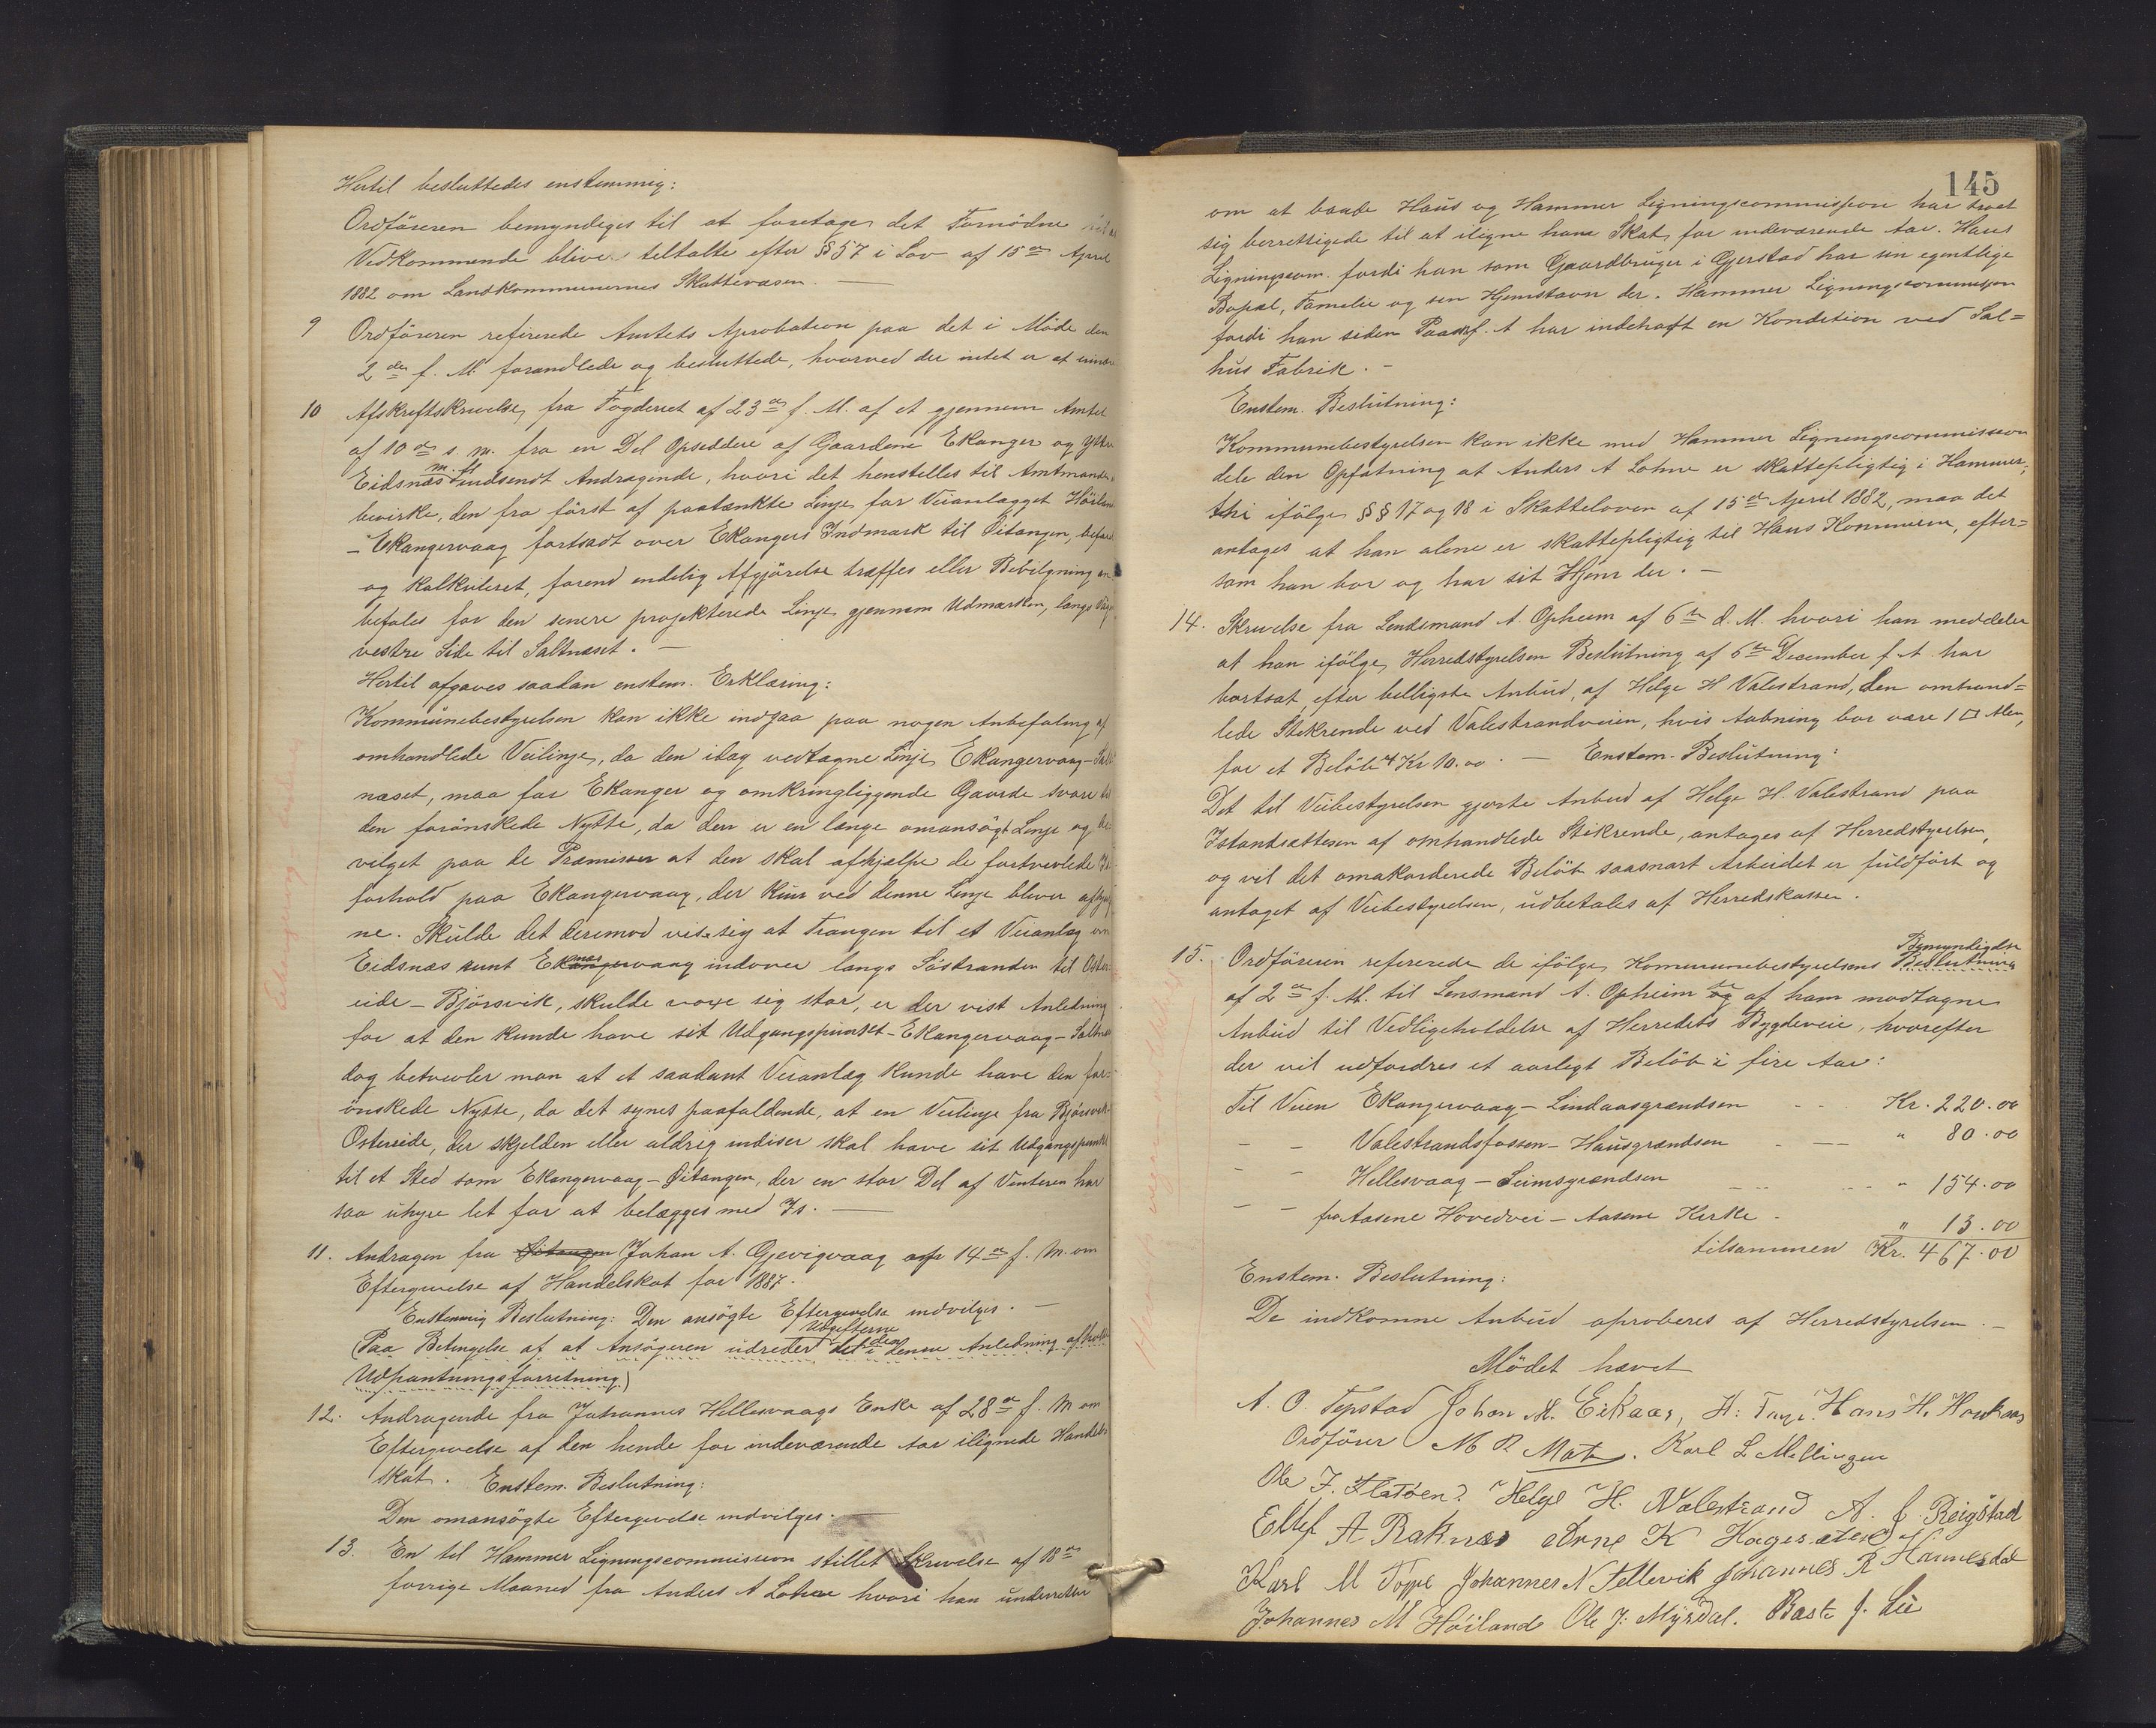 Hertil besluttedes enstemmig:
Ordföreren bemyndiges til at foretage det Fornödne
Vedkommende bliver tiltalte efter § 57 i Lov af 15de April
1882 om Landkommunernes Skattevæsen. —
9 Ordföreren refererede Amtets Aprobation paa det i Möde den
2den f. M. forandlede og besluttede, hvorved der intet er at
10 Afskriftskrivelse, fra Fogderiet af 23de f. M. af et gjennem Amtet
af 10de s. m. fra en Del Opsiddere af Gaardene Ekanger og
Eidsnæs m. fl. indsendt Andragende, hvori det henstilles til Amtmanden
bevirke, den fra först af paatænkte Linje for Veianlægget
– Ekangervaag fortsadt over Ekangers Indmark til Öitangen,
og kalkuleret, forend endelig Afgjörelse træffes eller Bevilgning an-
befales for den senere projekterede Linje gjennem Udmarken, langs
vestre Side til Saltnæset. —
Hertil afgaves saadan enstem. Erklæring:
Kommunebestyrelsen kan ikke indgaa paa nogen Anbefaling af
omhandlede Veilinje, da den idag vedtagne Linje Ekangervaag –
næset, maa for Ekanger og omkringliggende Gaarde svare til
den forönskede Nytte, da den er en længe omansögt Linje og be-
vilget paa de Præmisser at den skal afhjælpe de fortvivlede Is-
forhold paa Ekangervaag, der kun ved denne Linje bliver
ne. Skulde det derimod vise sig at Trangen til et Veianlæg om
Eidsnæs samt Ekangervaag indover langs Söstranden til Oster-
eide – Björsvik, skulde være sig stor, er der vist Anledning
for at den kunde have sit Udgangspunkt – Ekangervaag – Saltnæ
dog betvivler man at et saadant Veianlæg kunde have den for-
önskede Nytte, da det synes paafaldende, at en Veilinje fra Björsvik-
Ostereide, der skjelden eller aldrig indiser skal have sit Udgangspunkt
til et Sted som Ekangervaag – Öitangen, der en stor Del af Vinteren har
saa uhyre let for at belægges med Is. —
11. Andragen fra Öitangen Johan A. Gjevigvaag af 14de f. M. om
Eftergivelse af Handelskat for 1887.
Enstemmig Beslutning: Den ansögte Eftergivelse indvilges. —
Udgifterne
(Paa Betingelse af at Ansögeren udreder det i den denne Anledning afholdte
Udpantningsforretning)
12. Andragende fra Johannes Hellesvaags Enke af 28de f. M om
Eftergivelse af den hende for indeværende Aar ilignede Handels-
skat. Enstem. Beslutning:
Den omansögte Eftergivelse indvilges. —
13. En til Hammer Ligningscommission stillet Skrivelse af 18de
forrige Maaned fra Anders A Lohne hvori han underretter
145
om at baade Haus og Hammer Ligningscommission har troet
sig berrettigede til at iligne ham Skat for indeværende Aar. Haus
Ligningscom. fordi han som Gaardbruger i Gjerstad har sin egentlige
Bopæl, Familie og sin Hjemstavn der. Hammer Ligningscommission
fordi han siden Paaske f. A har indehaft en Kondition ved Sal=
hus Fabrik. –
Enstem. Beslutning:
Kommunebestyrelsen kan ikke med Hammer Ligningscommission
dele den Opfatning at Anders A Lohne er skattepligtig i Hammer,
thi ifölge §§ 17 og 18 i Skatteloven af 15de April 1882, maa det
antages at han alene er skattepligtig til Haus Kommune, efter=
som han bor og har sit Hjem der. –
14. Skrivelse fra Lendsmand A. Opheim af 6te d. M. hvori han meddeler
at han ifölge Herredstyrelsen Beslutning af 6te December f. A. har
bortsat, efter billigste Anbud, af Helge H Valestrand, den omhand=
lede Stikrende ved Valestrandveien, hvis Aabning bor være 1 □ Alen,
for et Belöb af Kr 10.00. — Enstem. Beslutning:
Det til Veibestyrelsen gjorte Anbud af Helge H. Valestrand paa
Istandsættesen af omhandlede Stikrende, antages af Herredstyrelsen,
og vil det omakorderede Belöb saasnart Arbeidet er fuldfört og
antaget af Veibestyrelsen, udbetales af Herredskassen.
Bemyndigelse
15. Ordföreren refererede de ifölge Kommunebestyrelsens Beslutning
af 2den f. M. til Lensmand A. Opheim og af ham modtagne
Anbud til Vedligeholdelse af Herredets Bygdeveie, hvorefter
der vil udfordres et aarligt Belöb i fire Aar:
Til Veien Ekangervaag – Lindaasgrændsen Kr. 220.00
– – Valestrandsfossen – Hausgrændsen — " 80.00
– – Hellesvaag – Seimsgrændsen " 154.00
– – fra Aasene Hovedvei – Aasene Kirke " 13.00
tilsammen Kr. 467.00
Enstem. Beslutning:
De indkomne Anbud aproberes af Herredstyrelsen. –
Mödet hævet
A. O. Tepstad Johan M. Eikaas, H: Hans H.
Ordförer M R Karl L Mellingen
Ole J. Helge H. Valestrand A. J. Reigstad
Ellef A Raknes Arne K
Karl M Toppe Johannes N Tellevik Johannes R Hannesdal
Johannes M Höiland Ole J: Myrdal. J. Lie